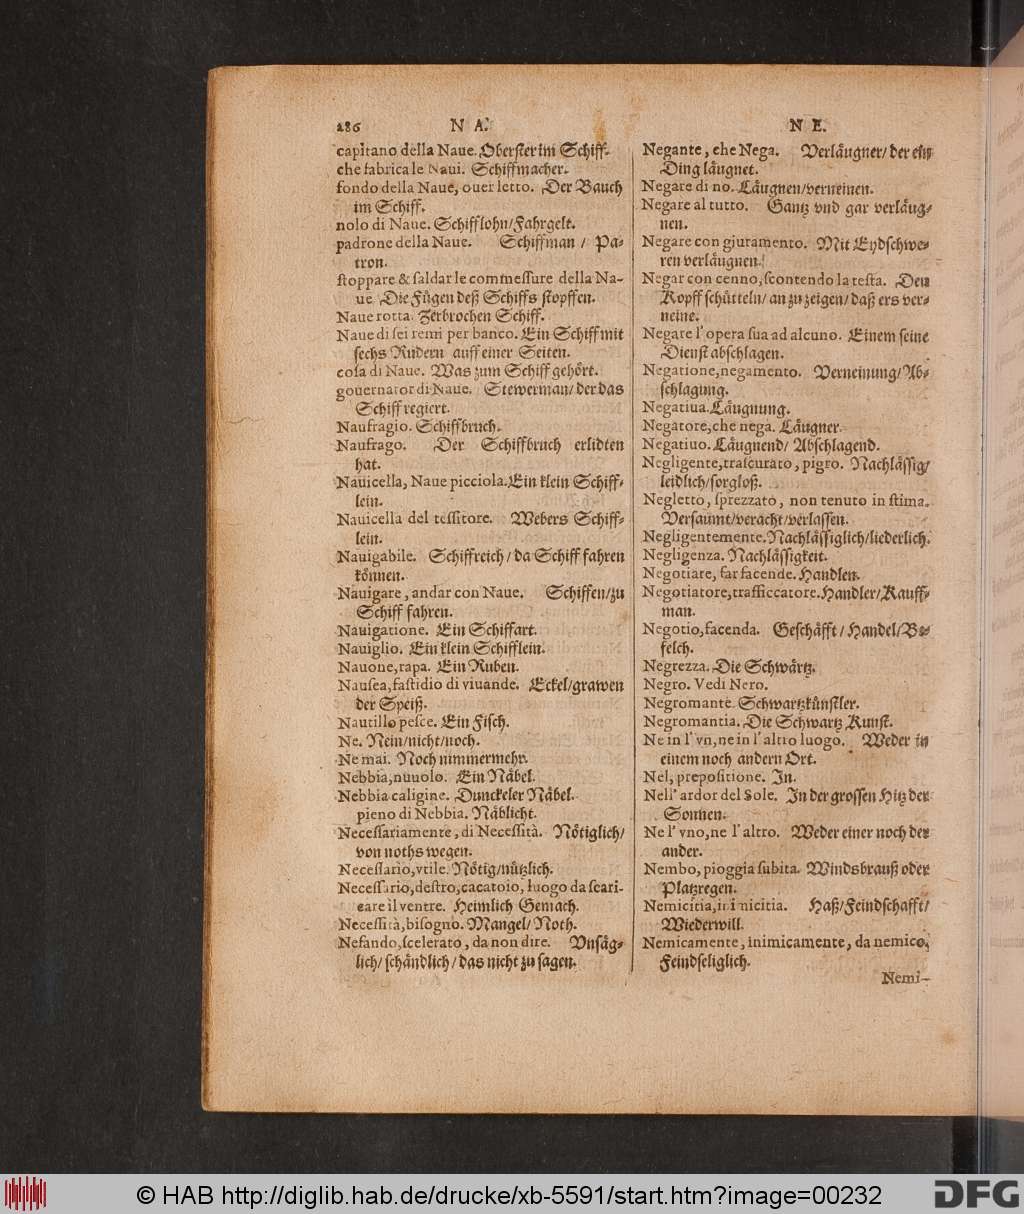 286 N A.
capitano della Naue. Oberster im Schiff.
che fabrica le Naui. Schiffmacher.
fondo della Naue, ouer letto. Der Bauch
im Schiff.
nolo di Naue. Schifflohn/Fahrgelt.
padrone della Naue. Schiffman / Pa-
tron.
stoppare & saldar le commessure della Na-
ue Die Fügen deß Schiffs stopffen.
Naue rotta. Zerbrochen Schiff.
Naue di sei remi per banco. Ein Schiff mit
sechs Rudern auff einer Seiten.
cosa di Naue. Was zum Schiff gehört.
gouernator di Naue. Stewerman/ der das
Schiff regiert.
Naufragio. Schiffbruch.
Naufrago. Der Schiffbruch erlidten
hat.
Nauicella, Naue picciola. Ein klein Schiff-
lein.
Nauicella del tessitore. Webers Schiff-
lein.
Nauigabile. Schiffreich / da Schiff fahren
können.
Nauigare, andar con Naue. Schiffen/zu
Schiff fahren.
Nauigatione. Ein Schiffart.
Nauiglio. Ein klein Schifflein.
Nauone, rapa. Ein Ruben.
Nausea, fastidio di viuande. Eckel/grawen
der Speiß.
Nautillo pesce. Ein Fisch.
Ne. Nein/nicht/noch.
Ne mai. Noch nimmermehr.
Nebbia, nuuolo. Ein Näbel.
Nebbia caligine. Dunckeler Näbel.
pieno di Nebbia. Näblicht.
Necessariamente, di Necessità. Nötiglich/
von noths wegen.
Necessario, vtile. Nötig/nützlich.
Necessario, destro, cacatoio, luogo da scari-
care il ventre. Heimlich Gemach.
Necessità, bisogno. Mangel/ Noth.
Nefando, scelerato, da non dire. Vnsäg-
lich/ schändlich / das nicht zu sagen.
N E.
Negante, che Nega. Verläugner/ der ein
Ding läugnet.
Negare di no. Läugnen/verneinen.
Negare al tutto. Gantz vnd gar verläug-
nen.
Negare con giuramento. Mit Eydschwe-
ren verläugnen.
Negar con cenno, scontendo la testa. Den
Kopff schütteln/ an zu zeigen/ daß ers ver-
neine.
Negare l' opera sua ad alcuno. Einem seine
Dienst abschlagen.
Negatione, negamento. Verneinung/ Ab-
schlagung.
Negatiua. Läugnung.
Negatore, che nega. Läugner.
Negatiuo. Läugnend/ Abschlagend.
Negligente, trascurato, pigro. Nachlässig/
leidlich/sorgloß.
Negletto, sprezzato, non tenuto in stima.
Versaumt/veracht/verlassen.
Negligentemente. Nachlässiglich/liederlich.
Negligenza. Nachlässigkeit.
Negotiare, far facende. Handlen.
Negotiatore, trafficcatore. Handler/ Kauff-
man.
Negotio, facenda. Geschäfft / Handel/ Be-
felch.
Negrezza. Die Schwärtz.
Negro. Vedi Nero.
Negromante. Schwartzkünstler.
Negromantia. Die Schwartz Kunst.
Ne in l' vn, ne in l' altro luogo. Weder in
einem noch andern Ort.
Nel, prepositione. In.
Nell' ardor del Sole. In der grossen Hitz der
Sonnen.
Ne l' vno, ne l' altro. Weder einer noch der
ander.
Nembo, pioggia subita. Windsbrauß oder
Platzregen.
Nemicitia, inimicitia. Haß/Feindschafft/
Wiederwill.
Nemicamente, inimicamente, da nemico.
Feindseliglich.
Nemi-
© HAB http://diglib.hab.de/drucke/xb-5591/start.htm?image=00232
DFG